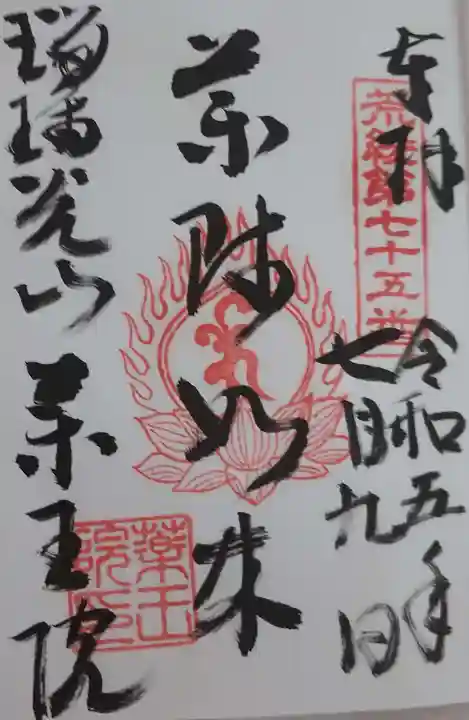 奉拝
荒綾 七十五番
令和五年
七月九日
薬師如来
瑠璃光山 薬王院
薬王
院印